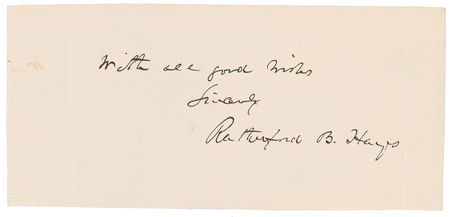 With all good wishes
Sincerely
Rutherford B. Hayes